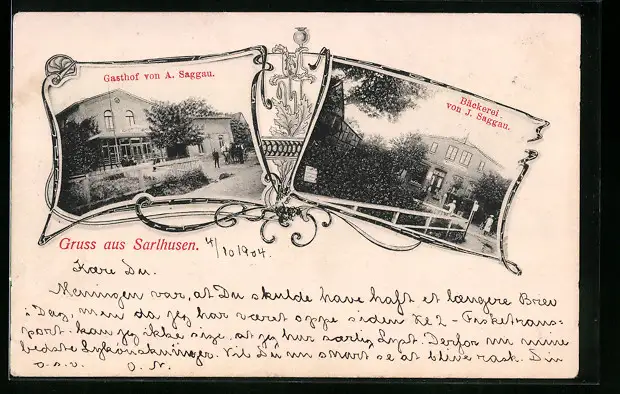 Gasthof von A. Saggau.
Bäckerei
von J. Saggau.
Gruss aus Sarlhusen. 4/10 1904.
Kære Du.
Meningen var, at Du skulde have haft et længere Brev
i Dag, men da jeg har været oppe siden Kl 2 – Fisketrans=
port. kan jeg ikke sige, at jeg har særlig Lyst. Derfor nu mine
bedste Lykønskninger. Vil Du nu snart se at blive rask. Din
o.s.v. O. N.